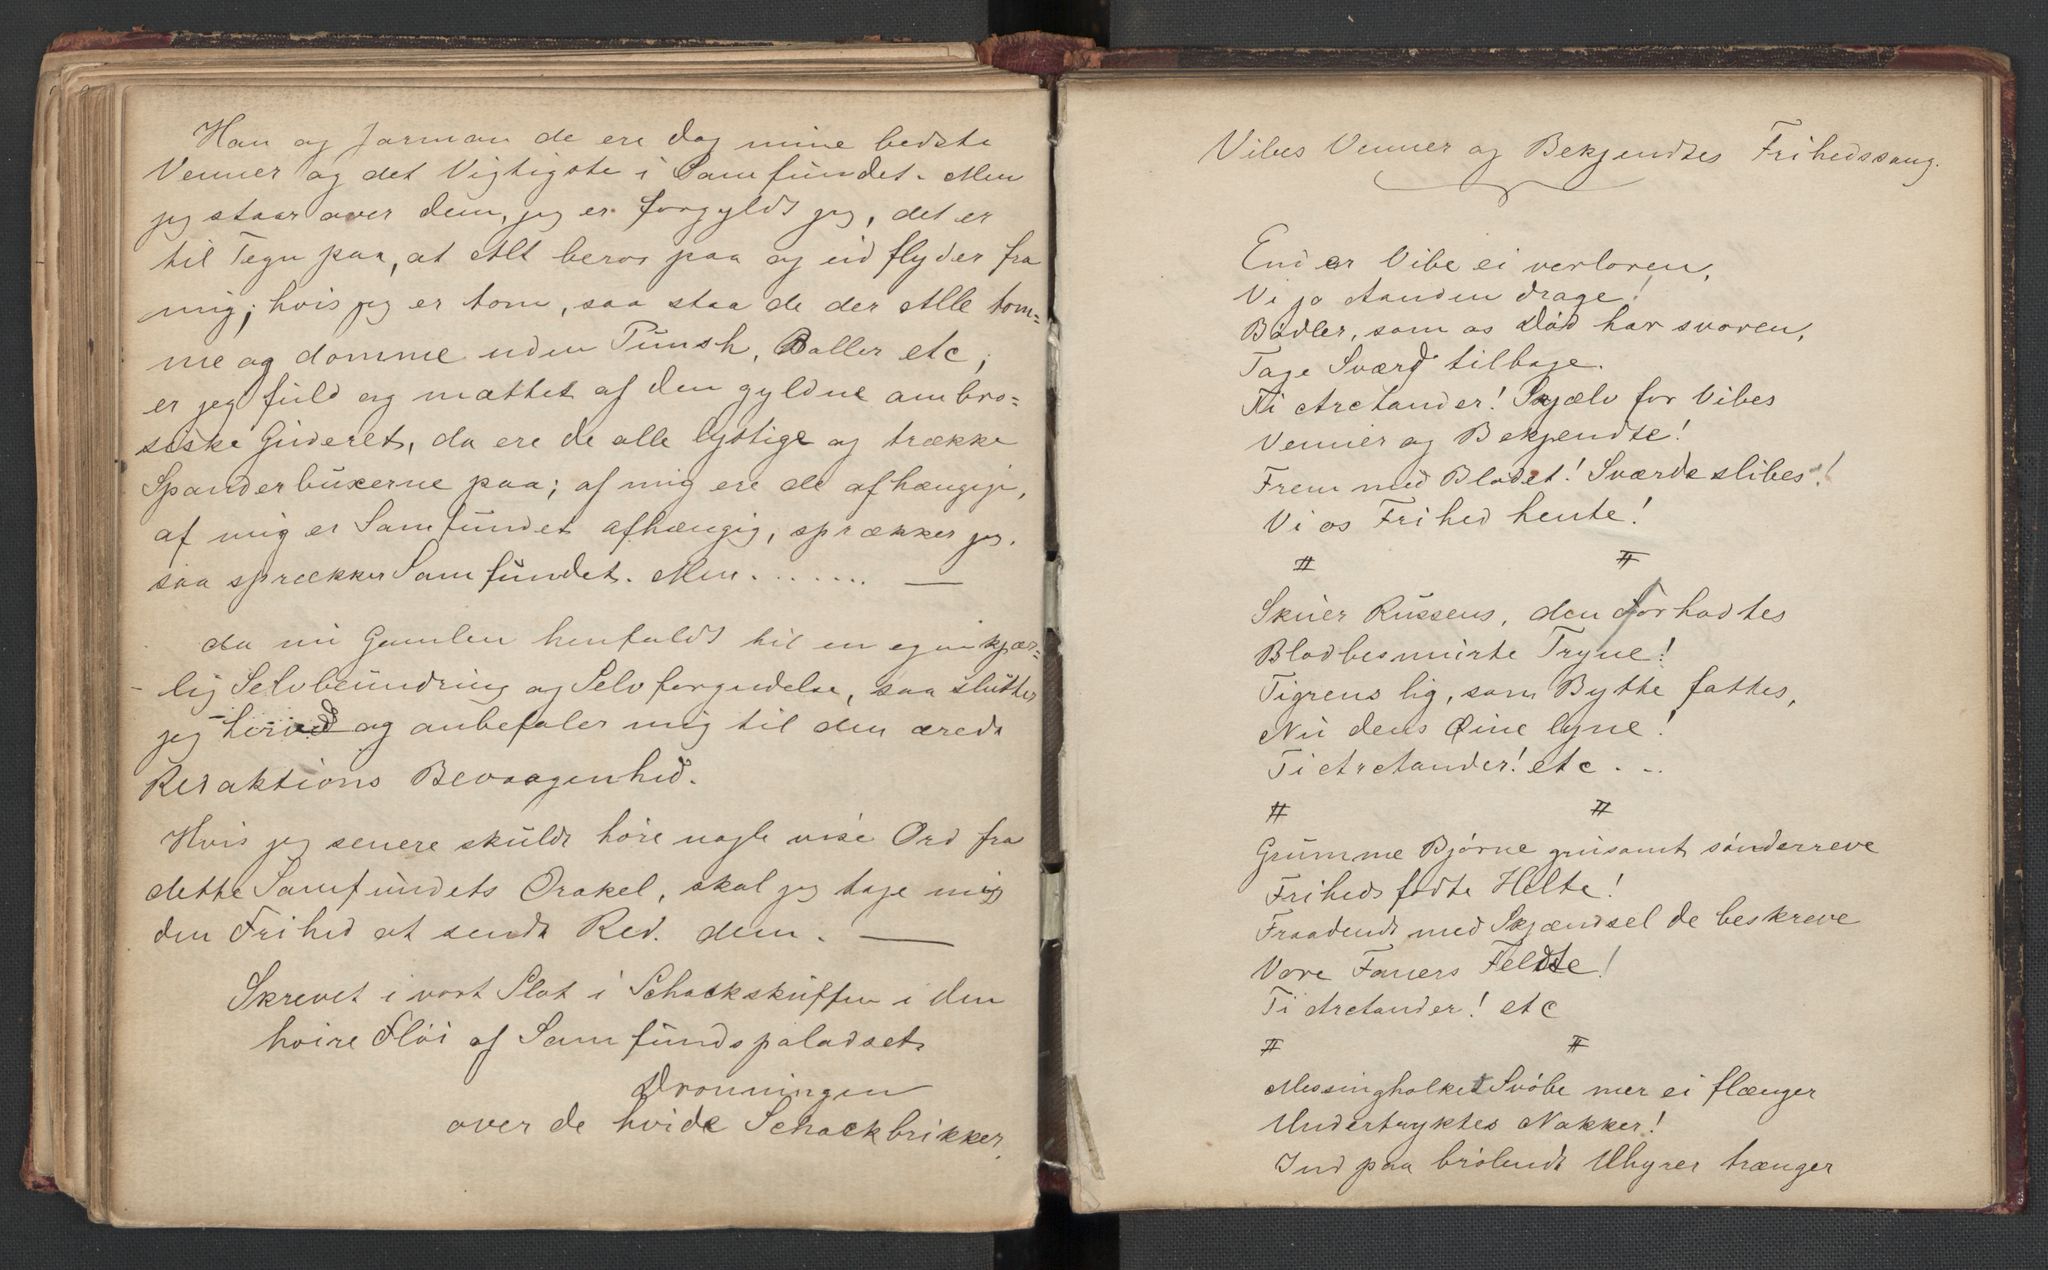 Han og Jarman de ere dog mine bedste
Venner og det Vigtigste i Samfundet. Men
jeg staar over dem, jeg er forgyldt jeg, det er
til Tegn paa, at Alt beror paa og udflyder fra
mig; hvis jeg er tom, saa staa de der Alle tom-
me og domme uden Punsh, Boller etc,
er jeg fuld og mættet af den gyldne ambro-
siske Guderet, da ere de alle lystige og trække
Spanderbuxerne paa; af mig ere de afhængige,
af mig er Samfundet afhængig, sprækker jeg,
saa sprækker Samfundet. Men. . . . . . . —
da nu Gamlen henfaldt til en egenkjær-
lig Selvbeundring og Selvforgudelse, saa slutter
jeg herved og anbefaler mig til den ærede
Redaktions Bevaagenhed.
Hvis jeg senere skulde høre nogle vise Ord fra
dette Samfundets Orakel, skal jeg tage mig
den Frihed at sende Red. dem. —
Skrevet i vort Slot i Schackskuffen i den
høire Fløi af Samfundspaladset.
Dronningen
over de hvide Schackbrikker.
Vibes Venner og Bekjendtes Frihedssang.
End er Vibe ei verloren,
Vi jo Aanden drage!
Bødler, som os Død har svoren,
Tage Sværd tilbage.
Ti Arctander! Skjælv for Vibes
Venner og Bekjendte!
Frem med Blodet! Sværde slibes!
Vi os Frihed hente!
# #
Skuer Russens, den forhadtes
Blodbesmurte Tryne!
Tigrens lig, som Bytte fattes,
Nu dens Øine lyne!
Ti Arctander! etc . . .
# #
Grumme Bjørne grusomt sønderreve
Frihedsfødte Helte!
Fraadende med Skjændsel de beskreve
Vore Faners Feldte!
Ti Arctander! etc
# #
Messingholket Svøbe mer ei flænger
Undertryktes Nakker!
Ind paa brølende Uhyrer trænger